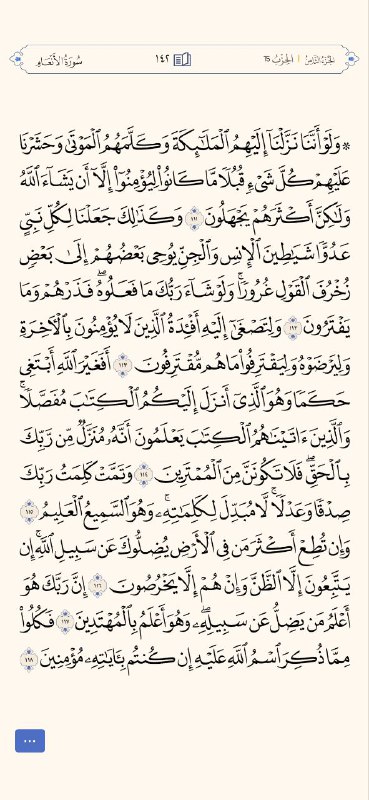 الجُزْءُ الثَّامِنُ | الحِزْبُ 15
١٤٢
سُورَةُ الأَنْعَامِ
۞ وَلَوْ أَنَّنَا نَزَّلْنَآ إِلَيْهِمُ ٱلْمَلَٰٓئِكَةَ وَكَلَّمَهُمُ ٱلْمَوْتَىٰ وَحَشَرْنَا
عَلَيْهِمْ كُلَّ شَىْءٍ قُبُلًا مَّا كَانُوا۟ لِيُؤْمِنُوٓا۟ إِلَّآ أَن يَشَآءَ ٱللَّهُ
وَلَٰكِنَّ أَكْثَرَهُمْ يَجْهَلُونَ ١١١ وَكَذَٰلِكَ جَعَلْنَا لِكُلِّ نَبِىٍّ
عَدُوًّا شَيَٰطِينَ ٱلْإِنسِ وَٱلْجِنِّ يُوحِى بَعْضُهُمْ إِلَىٰ بَعْضٍ
زُخْرُفَ ٱلْقَوْلِ غُرُورًا ۚ وَلَوْ شَآءَ رَبُّكَ مَا فَعَلُوهُ ۖ فَذَرْهُمْ وَمَا
يَفْتَرُونَ ١١٢ وَلِتَصْغَىٰٓ إِلَيْهِ أَفْـِٔدَةُ ٱلَّذِينَ لَا يُؤْمِنُونَ بِٱلْـَٔاخِرَةِ
وَلِيَرْضَوْهُ وَلِيَقْتَرِفُوا۟ مَا هُم مُّقْتَرِفُونَ ١١٣ أَفَغَيْرَ ٱللَّهِ أَبْتَغِى
حَكَمًا وَهُوَ ٱلَّذِىٓ أَنزَلَ إِلَيْكُمُ ٱلْكِتَٰبَ مُفَصَّلًا ۚ
وَٱلَّذِينَ ءَاتَيْنَٰهُمُ ٱلْكِتَٰبَ يَعْلَمُونَ أَنَّهُۥ مُنَزَّلٌ مِّن رَّبِّكَ
بِٱلْحَقِّ ۖ فَلَا تَكُونَنَّ مِنَ ٱلْمُمْتَرِينَ ١١٤ وَتَمَّتْ كَلِمَتُ رَبِّكَ
صِدْقًا وَعَدْلًا ۚ لَّا مُبَدِّلَ لِكَلِمَٰتِهِۦ ۚ وَهُوَ ٱلسَّمِيعُ ٱلْعَلِيمُ ١١٥
وَإِن تُطِعْ أَكْثَرَ مَن فِى ٱلْأَرْضِ يُضِلُّوكَ عَن سَبِيلِ ٱللَّهِ ۚ إِن
يَتَّبِعُونَ إِلَّا ٱلظَّنَّ وَإِنْ هُمْ إِلَّا يَخْرُصُونَ ١١٦ إِنَّ رَبَّكَ هُوَ
أَعْلَمُ مَن يَضِلُّ عَن سَبِيلِهِۦ ۖ وَهُوَ أَعْلَمُ بِٱلْمُهْتَدِينَ ١١٧ فَكُلُوا۟
مِمَّا ذُكِرَ ٱسْمُ ٱللَّهِ عَلَيْهِ إِن كُنتُم بِـَٔايَٰتِهِۦ مُؤْمِنِينَ ١١٨